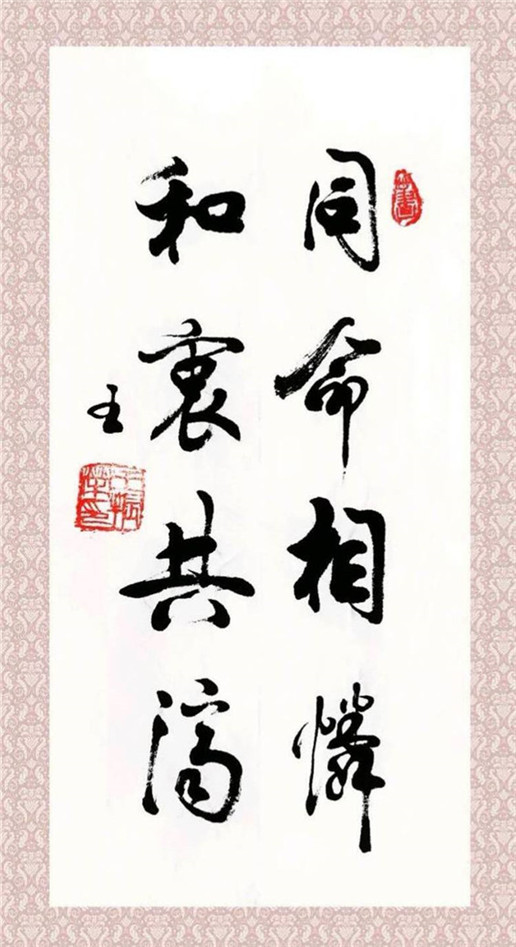 同命相憐
和衷共濟
王